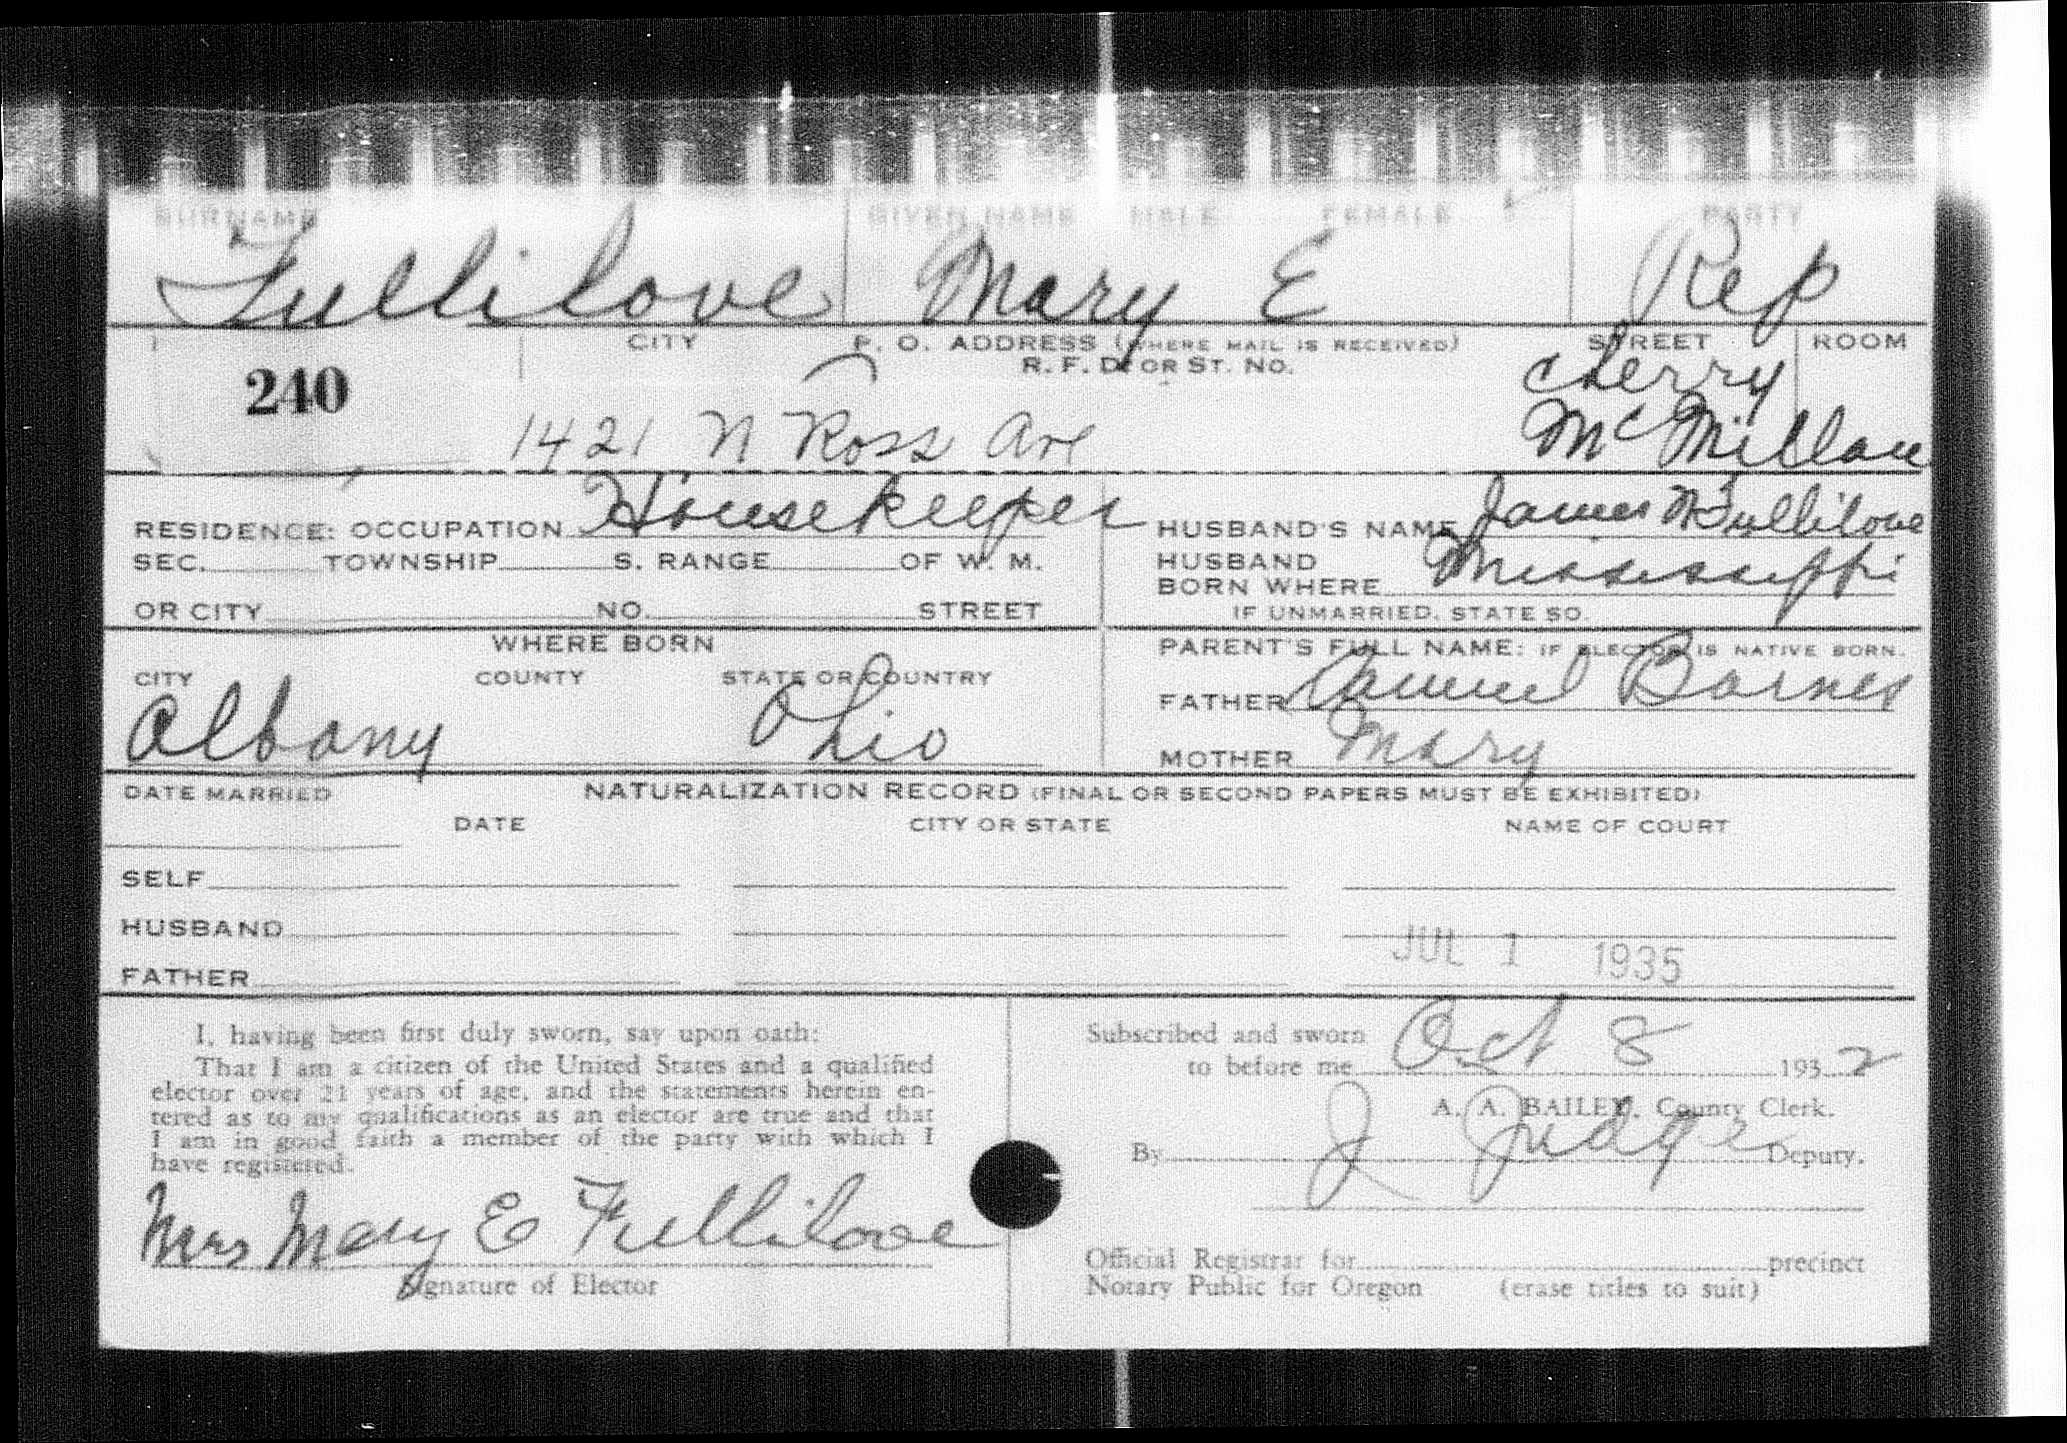 SURNAME GIVEN NAME MALE FEMALE PARTY
Fullilove Mary E Rep
CITY P. O. ADDRESS (WHERE MAIL IS RECEIVED) STREET ROOM
R. F. D. OR ST. NO.
240 Cherry
1421 N Ross Ave McMillan
RESIDENCE: OCCUPATION Housekeeper HUSBAND'S NAME James Fullilove
SEC. TOWNSHIP S. RANGE OF W. M. HUSBAND
BORN WHERE Mississippi
OR CITY NO. STREET IF UNMARRIED, STATE SO.
WHERE BORN PARENT'S FULL NAME: IF ELECTOR IS NATIVE BORN.
CITY COUNTY STATE OR COUNTRY
Albany Ohio FATHER Barnes
MOTHER Mary
DATE MARRIED NATURALIZATION RECORD (FINAL OR SECOND PAPERS MUST BE EXHIBITED)
DATE CITY OR STATE NAME OF COURT
SELF
HUSBAND
JUL 1 1935
FATHER
I, having been first duly sworn, say upon oath:
That I am a citizen of the United States and a qualified
elector over 21 years of age, and the statements herein en-
tered as to my qualifications as an elector are true and that
I am in good faith a member of the party with which I
have registered.
Mrs Mary E Fullilove
Signature of Elector
Subscribed and sworn
to before me Oct 8 1932
A. A. BAILEY, County Clerk.
By J Judge Deputy.
Official Registrar for precinct
Notary Public for Oregon (erase titles to suit)